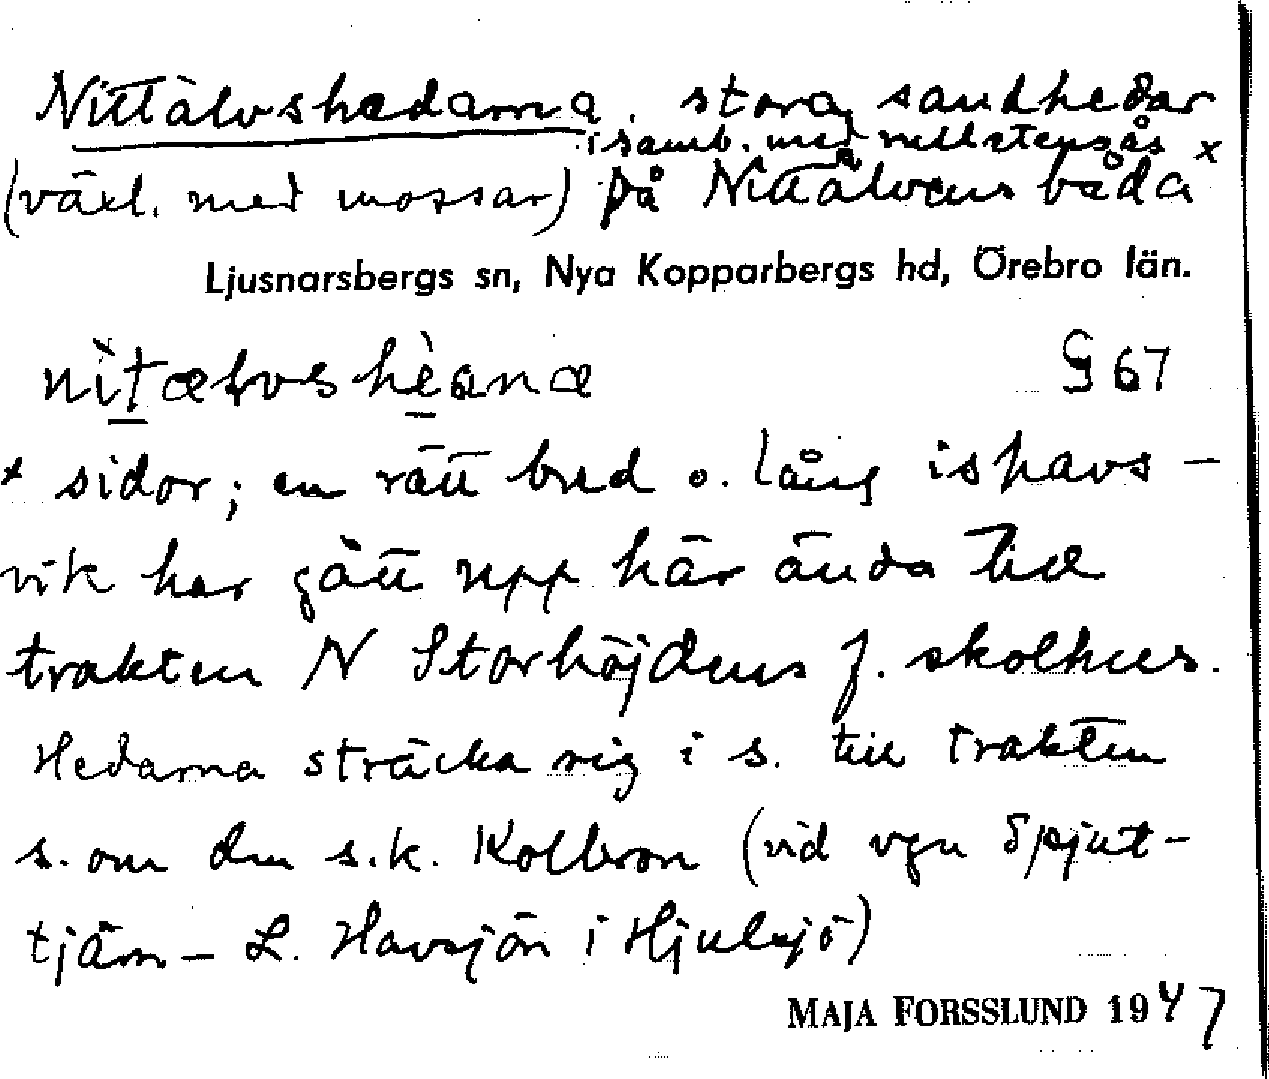 Nittälvshedarna. stora sandhedar
i samb. med rullstensås x
(växl. med mossar) på Nittälvens båda
Ljusnarsbergs sn, Nya Kopparbergs hd, Örebro län.
nìtæłvshèana G 67
x sidor; en rätt bred o. lång ishavs-
vik har gått upp här ända till
trakten N Storhöjdens f. skolhus.
Hedarna sträcka sig i s. till trakten
s. om den s.k. Kolbron (vid vgn Spjut-
tjärn - L. Havsjön i Hjulsjö)
MAJA FORSSLUND 1947